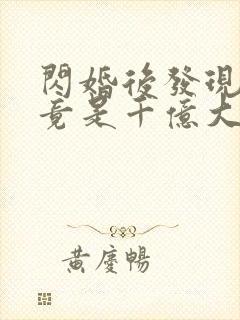 閃婚後發現
竟是千億大
黃慶暢